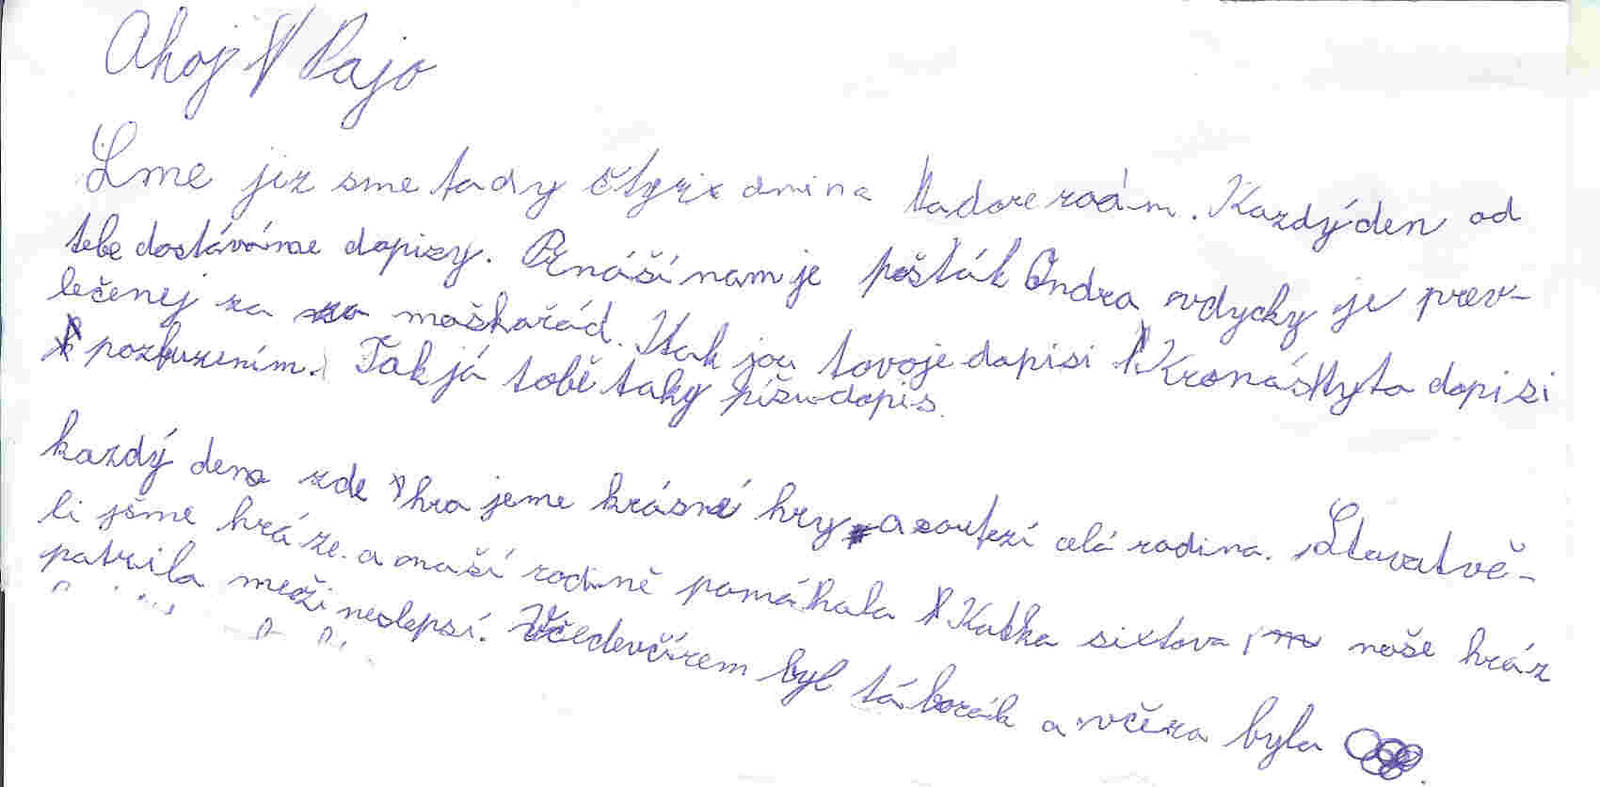 Ahoj Pajo
Sme jez sme tady čtyri dni na Nadorerám. Kazdý den od
tebe dostáváme dopizy. Prnáší nam je pošták Ondra vdycky je prev-
lečenej za maškařád. Itak jou tovoje dopisi Kronás ty to dopisi
pozbuzením. Tak já tobě taky píšu dopis.
kazdý den zde hra jeme krásné hry a soutezí celá rodina. Stavatvě-
li jsme hráze. a naší rodině pomáhala Katka sixtova, naše hráz
patrila meži nejlepsí. Včedevčírem byl táborák a včera byla